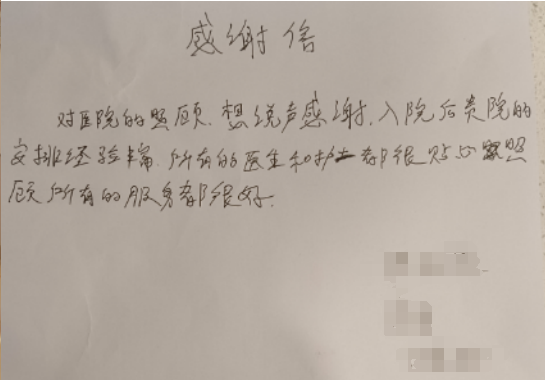 感谢信
对医院的照顾，想说声感谢，入院后贵院的
安排经验丰富，所有的医生和护士都很贴心照
顾所有的服务都很好.